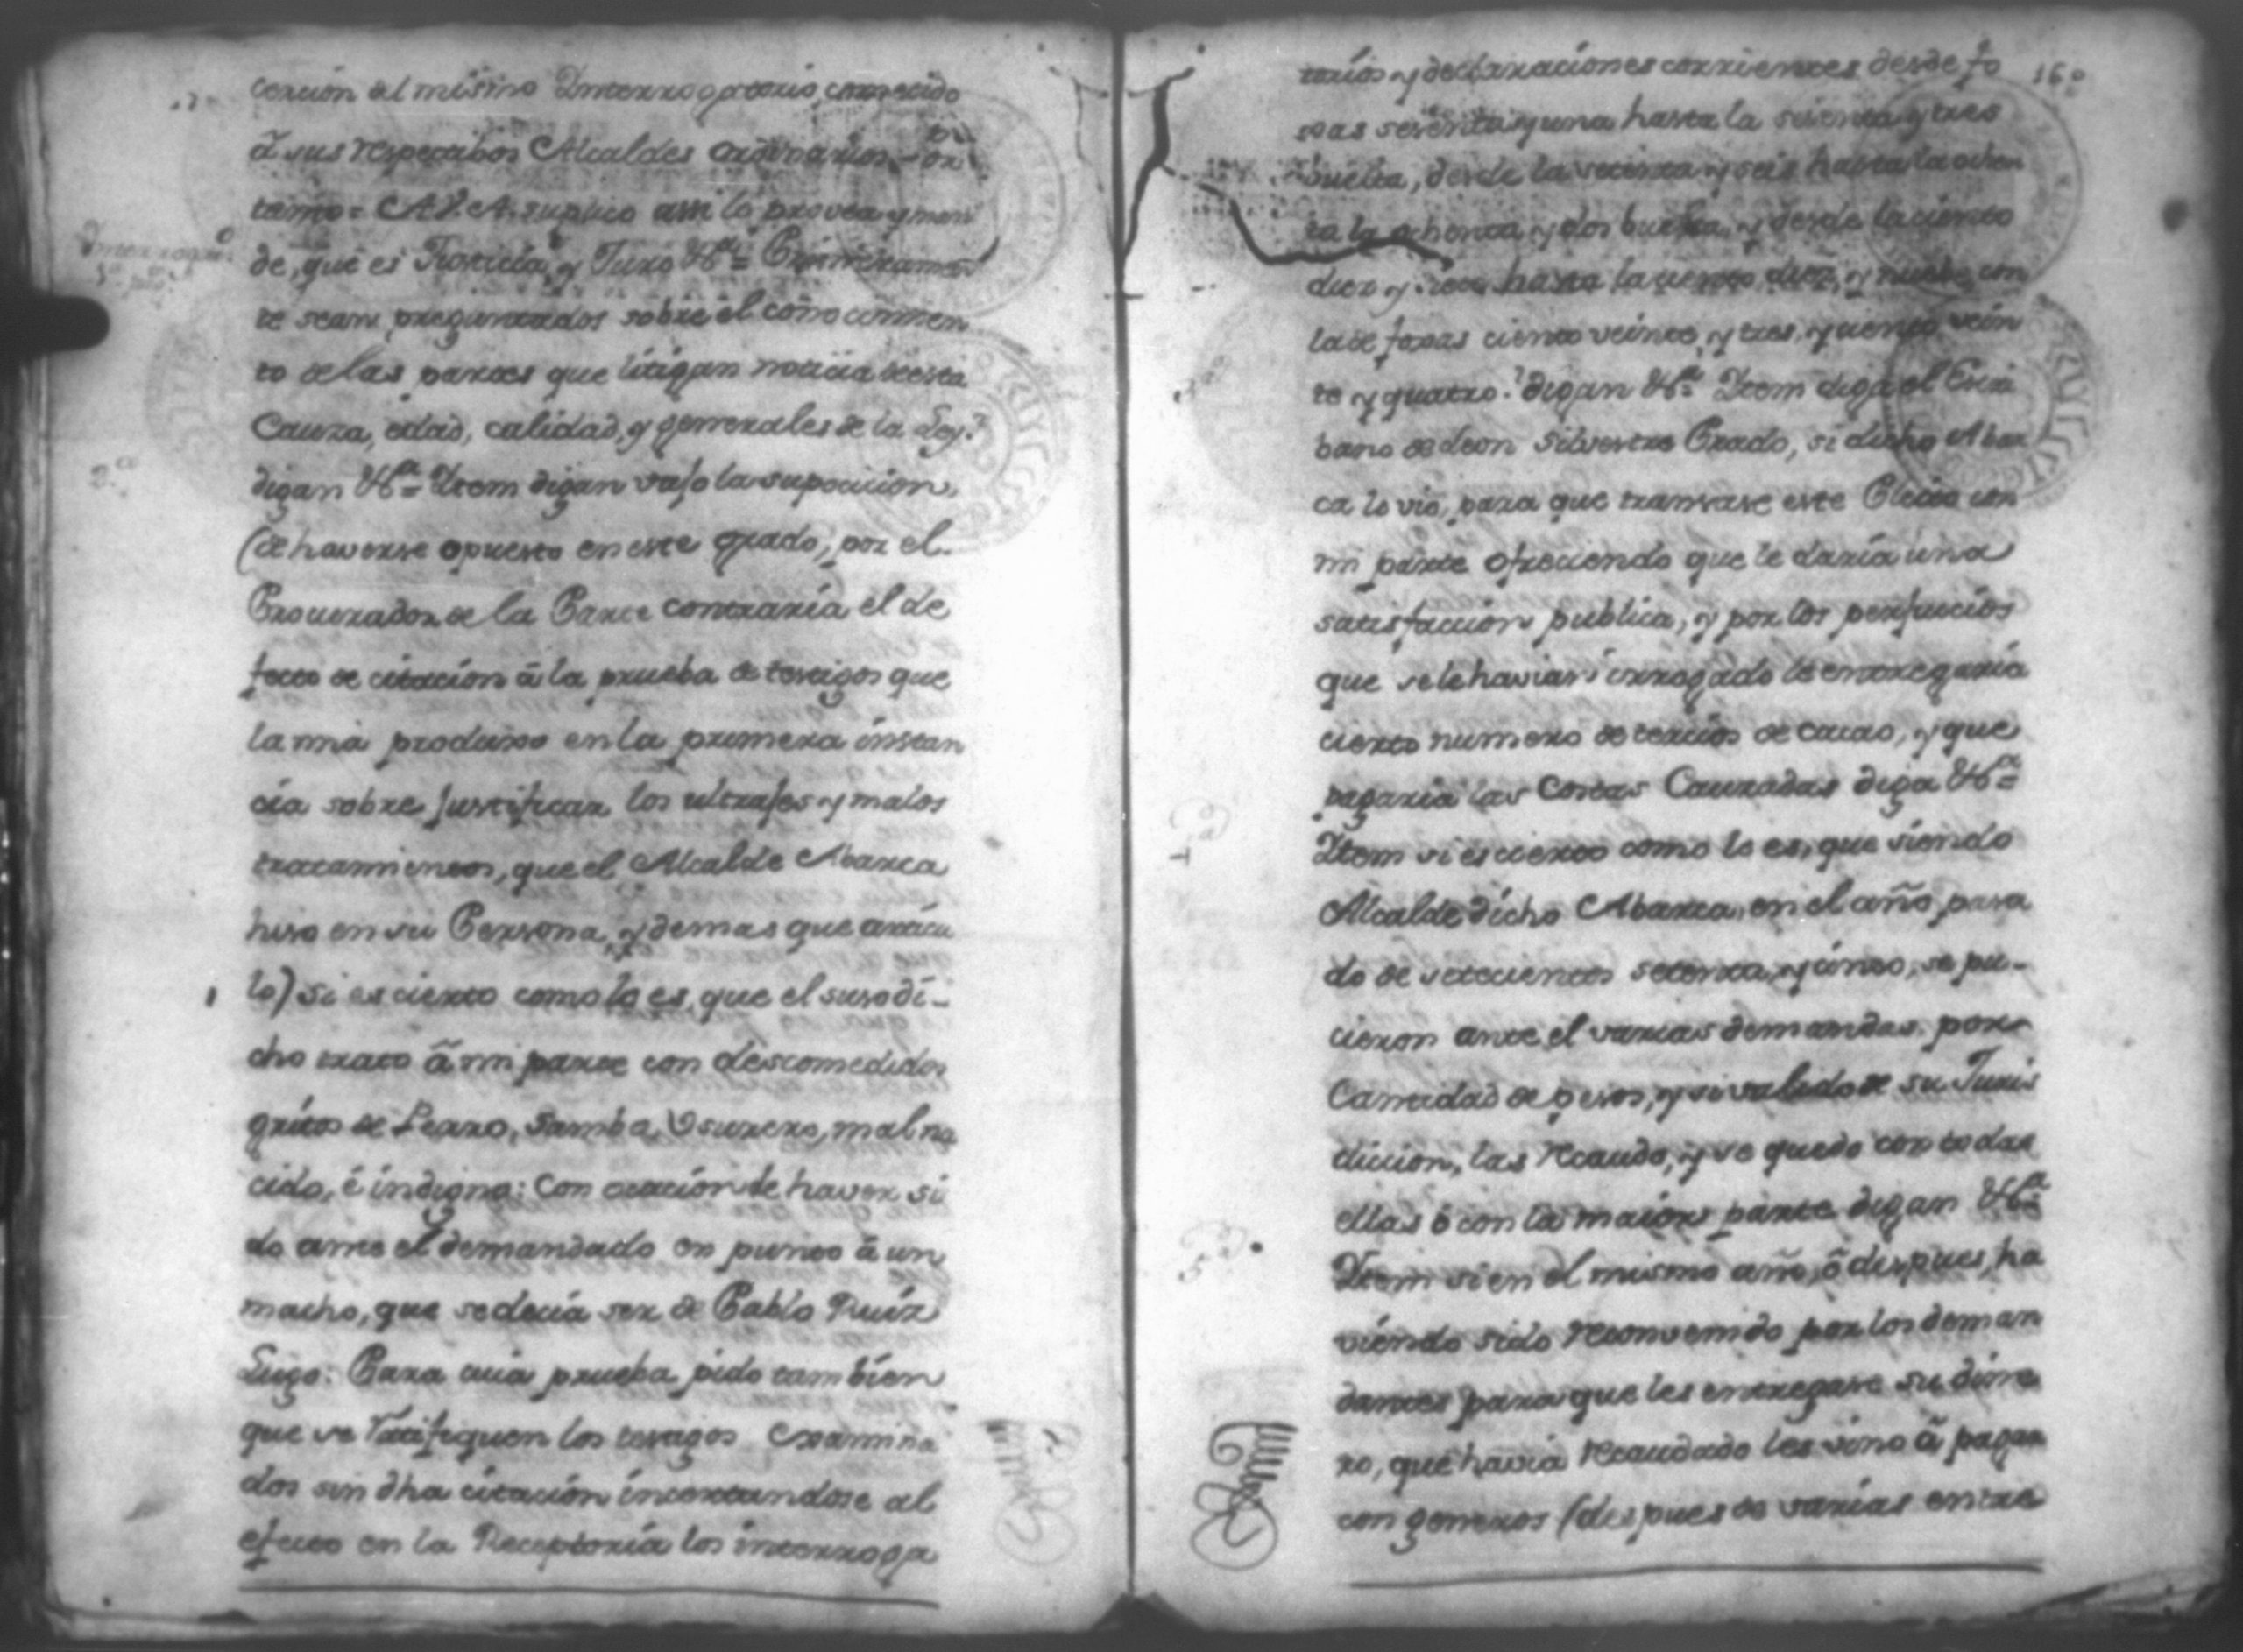 cercion del mismo Interrogatorio, cometido
â sus respectibos Alcaldes ordinarios, por
tanto = A V. A. suplico assi lo provea y man
Interrogat.º
de, que es Justicia, y Juro &ª = Primeramen
te sean preguntados sobre el conocimien
to de las partes que litigan noticia de esta
Cauza, edad, calidad, y generales de la Ley?
2.ª
digan &ª = Item digan vajo la suposicion,
(de haverse opuesto en este grado, por el
Procurador de la Parte contraria el de
fecto de citacion â la prueba de testigos que
la mia produxo en la primera instan
cia sobre justificar los ultrajes y malos
tratamientos, que el Alcalde Abarca
hiso en su Persona, y demas que articu
lo) si es cierto como lo es, que el susodi-
cho trato â mi parte con descomedidos
gritos de Perro, Samba, Usurero, mal na
cido, é indigno: Con ocación de haver si
do ante el demandado en punto â un
macho, que se decia ser de Pablo Ruiz
Lugo: Para cuia prueba pido tambien
que se ratifiquen los testigos examina
dos sin dha citacion incertandose al
efecto en la Receptoria los interroga
torios y declaraciones corrientes desde fo
xas sesenta y una hasta la sesenta y tres
buelta, desde la setenta y seis hasta la ochen
ta la ochenta y dos buelta, y desde la ciento
diez y siete hasta la ciento diez, y nuebe con
la de foxas ciento veinte, y tres, y ciento vein
te y quatro? digan &ª Item diga el Escri
bano de Leon Silvestre Prado, si dicho Abar
ca lo vio, para que transase este Pleito con
mi parte ofreciendo que le daria una
satisfaccion publica, y por los perjuicios
que se le havian irrogado le entregaria
cierto numero de tercios de cacao, y que
pagaria las Costas Cauzadas diga &ª =
Item si es cierto como lo es, que siendo
Alcalde dicho Abarca, en el año pasa
do de setecientos setenta, y cinco, se pu-
cieron ante el varias demandas por
Cantidad de pesos, y si valido de su Juris
diccion, las recaudo, y se quedo con todas
ellas ó con la maior parte digan &ª
5.ª
Item si en el mismo año, ô despues, ha
viendo sido reconvenido por los deman
dantes para que les entregase su dine
ro, que havia recaudado les vino â pagar
con generos (despues de varias entre